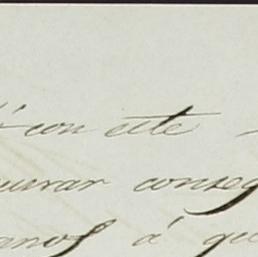 con este
curar conseg
anos á que